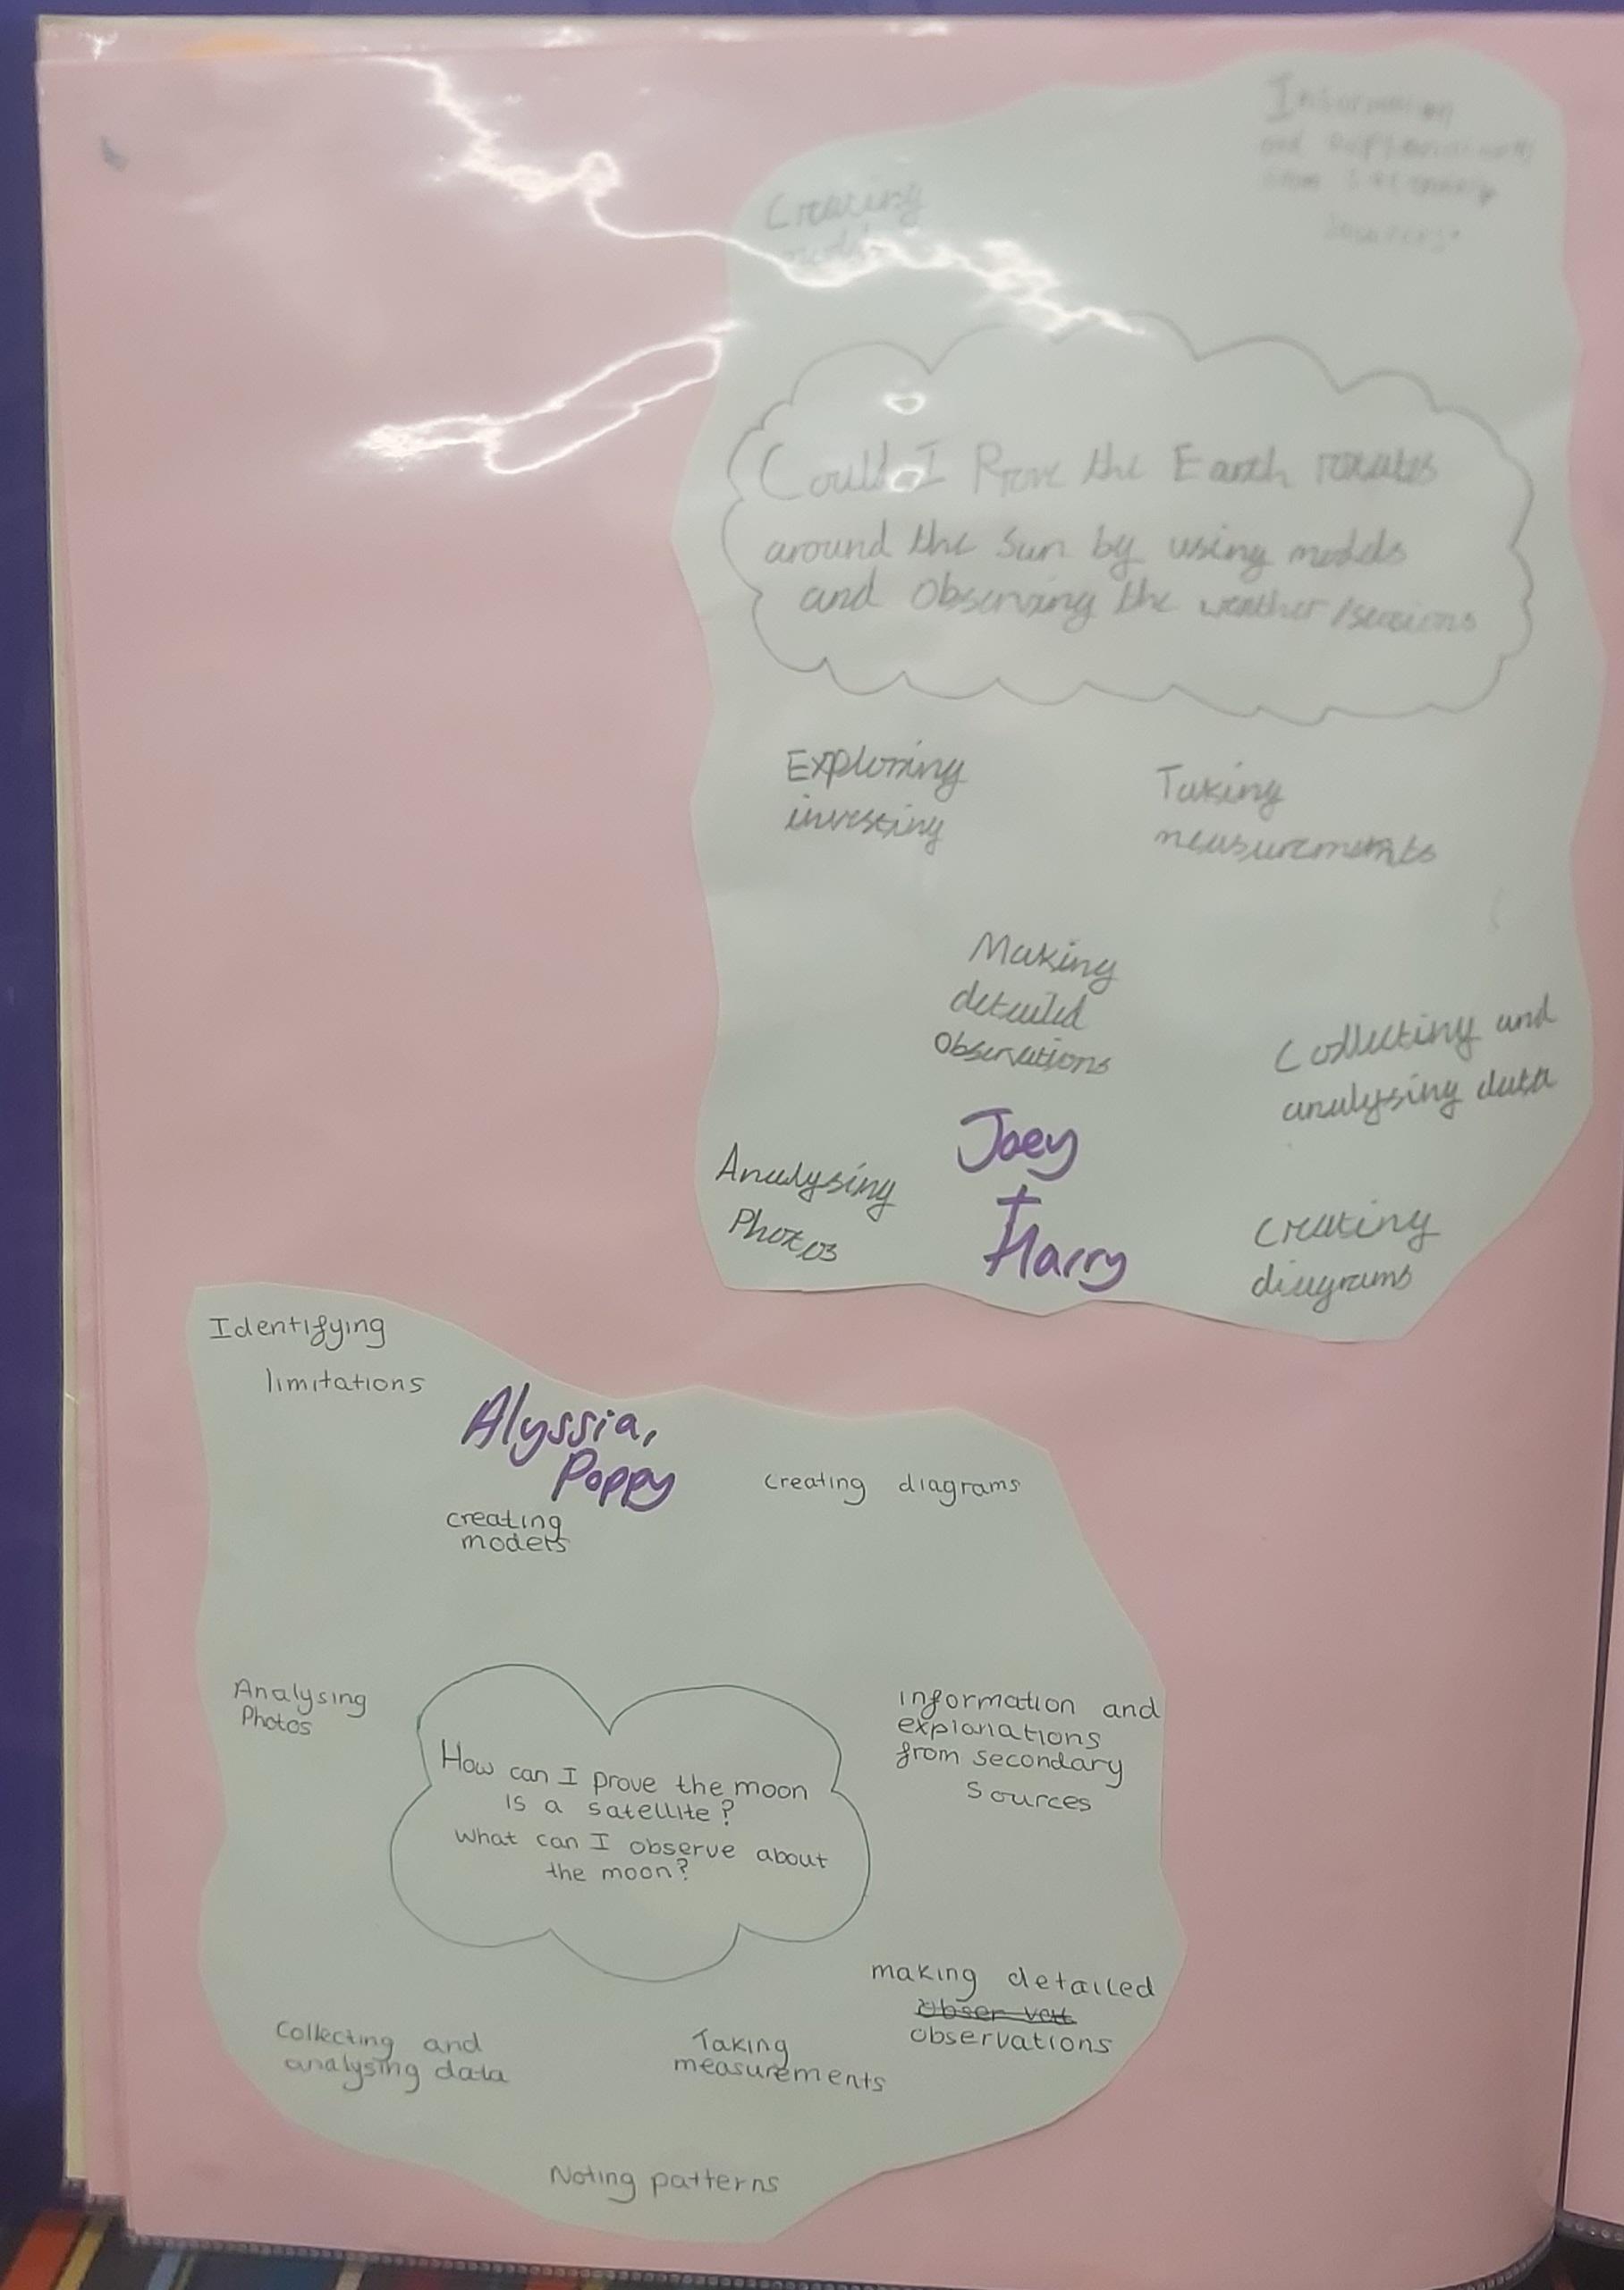 Creating
Information
and explanations
from secondary
sources
Could I Prove the Earth rotates
around the Sun by using models
and Observing the weather/seasions
Exploring
investing
Taking
measurements
Making
detailed
Observations
Collecting and
analysing data
Joey
+
Harry
Analysing
Photos
Creating
diagrams
Identifying
limitations
Alyssia,
Poppy
creating
models
creating diagrams
Analysing
Photos
How can I prove the moon
is a satellite?
What can I observe about
the moon?
information and
explanations
from secondary
sources
making detailed
observations
Collecting and
analysing data
Taking
measurements
Noting patterns